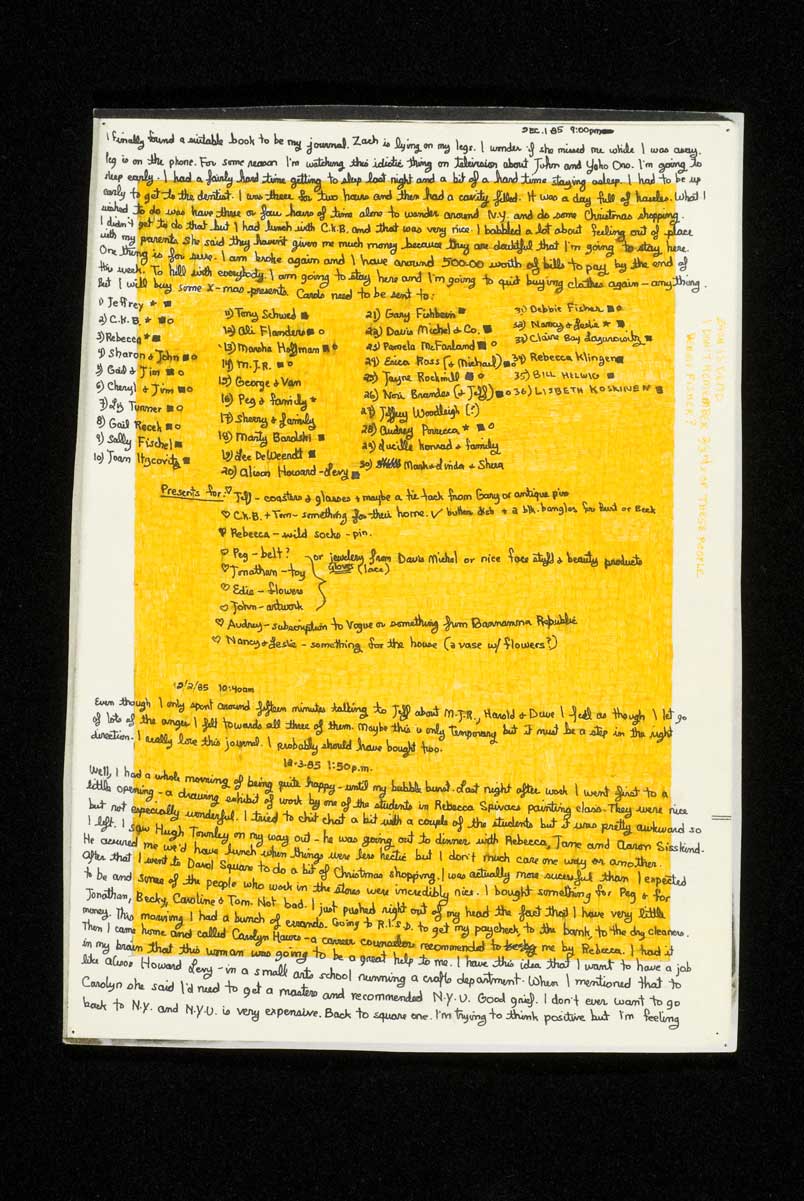 DEC. 1 85 9:00pm
I finally found a suitable book to be my journal. Zach is lying on my legs. I wonder if she missed me while I was away.
Jeg is on the phone. For some reason I'm watching this idiotic thing on television about John and Yoko Ono. I'm going to
sleep early. I had a fairly hard time getting to sleep last night and a bit of a hard time staying asleep. I had to be up
early to get to the dentist. I was there for two hours and then had a cavity filled. It was a day full of hassles. What I
wished to do was have three or four hours of time alone to wander around N.Y. and do some Christmas shopping.
I didn't get to do that but I had lunch with C.K.B. and that was very nice. I babbled a lot about feeling out of place
with my parents. She said they haven't given me much money because they are doubtful that I'm going to stay here.
One thing is for sure. I am broke again and I have around 500.00 worth of bills to pay by the end of
this week. To hell with everybody. I am going to stay here and I'm going to quit buying clothes again - anything.
But I will buy some x-mas presents. Cards need to be sent to:
1) Jeffrey
2) C.K.B.
3) Rebecca
4) Sharon & John
5) Gail & Jim
6) Cheryl & Jim
7) Liz Turner
8) Gail Recek
9) Sally Fischel
10) Joan Itzcovitz
11) Tony Schwed
12) Ali Flanders
13) Marsha Hoffman
14) M.J.R.
15) George & Van
16) Peg & family
17) Sherry & family
18) Marty Barolski
19) Lee DeWeendt
20) Alison Howard-Levy
21) Gary Fishbein
22) Davis Michel & Co.
23) Pamela McFarland
24) Erica Ross (& Michael)
25) Jayne Rockmill
26) Nori Brandes (& Jeff)
27) Jeffrey Woodleigh (?)
28) Audrey Porrecca
29) Lucille Konrad & family
30) Mark & Linda & Shera
31) Debbie Fisher
32) Nancy & Leslie
33) Claire Bay Lazarowitz
34) Rebecca Klinger
35) BILL HELWIG
36) LISBETH KOSKINEN
NOW I'M OLD
I DON'T REMEMBER 2/3rds OF THESE PEOPLE.
Presents for: Jeff - coasters & glasses & maybe a tie tack from Gary or antique pin
C.K.B. + Tom - something for their home. ✓ butter dish + a blk. bangles for
Rebecca - wild socks - pin.
Peg - belt?
Jonathan - toy
Edie - flowers
John - artwork
or jewelery from Davis Michel or nice face stuff & beauty products
Gloves (lace)
Audrey - subscription to Vogue or something from Bannanna Republic
Nancy & Leslie - something for the house (a vase w/ flowers?)
12/2/85 10:40am
Even though I only spent around fifteen minutes talking to Jeff about M.J.R., Harold & Dave I feel as though I let go
of lots of the anger I felt towards all three of them. Maybe this is only temporary but it must be a step in the right
direction. I really love this journal. I probably should have bought two.
12-3-85 1:50 p.m.
Well, I had a whole morning of being quite happy - until my bubble burst. Last night after work I went first to a
little opening - a drawing exhibit of work by one of the students in Rebecca Spivacs painting class. They were nice
but not especially wonderful. I tried to chit chat a bit with a couple of the students but it was pretty awkward so
I left. I saw Hugh Townley on my way out - he was going out to dinner with Rebecca, Jane and Aaron Sisskind.
He assured me we'd have lunch when things were less hectic but I don't much care one way or another.
After that I went to Davol Square to do a bit of Christmas shopping. I was actually more sucessful than I expected
to be and some of the people who work in the stores were incredibly nice. I bought something for Peg & for
Jonathan, Becky, Caroline & Tom. Not bad. I just pushed right out of my head the fact that I have very little
money. This morning I had a bunch of errands. Going to R.I.S.D. to get my paycheck to the bank, to the dry cleaners.
Then I came home and called Carolyn Hawes - a career counselor recommended to me by Rebecca. I had it
in my brain that this woman was going to be a great help to me. I have this idea that I want to have a job
like Alison Howard Levy - in a small arts school running a crafts department. When I mentioned that to
Carolyn she said I'd need to get a masters and recommended N.Y.U. Good grief. I don't ever want to go
back to N.Y. and N.Y.U. is very expensive. Back to square one. I'm trying to think positive but I'm feeling